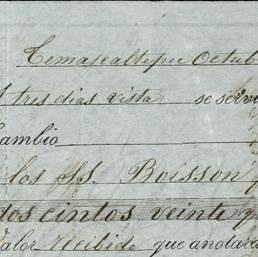 Temascaltepec Octub
A tres dias vista se servi
Cambio
los SS. Boisson y
doscintos veinte y
Valor recibido que anotara